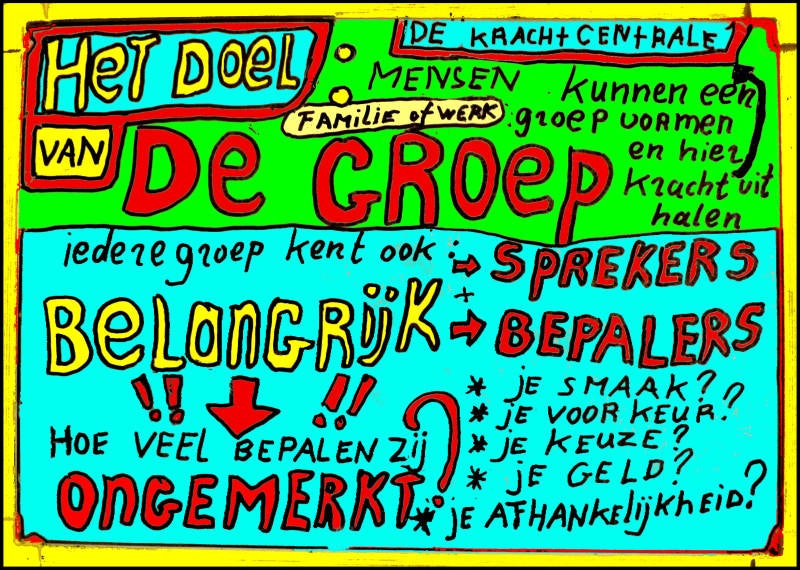 HET DOEL
VAN
DE GROEP
DE KRACHTCENTRALE
: MENSEN
FAMILIE of WERK
kunnen een
groep vormen
en hier
kracht uit
halen
iedere groep kent ook :
⇒ SPREKERS
+
⇒ BEPALERS
BELANGRIJK
!! !!
HOE VEEL BEPALEN ZIJ
ONGEMERKT ?
* je SMAAK?
* je VOORKEUR?
* je KEUZE?
* je GELD?
* je AFHANKELIJKHEID?